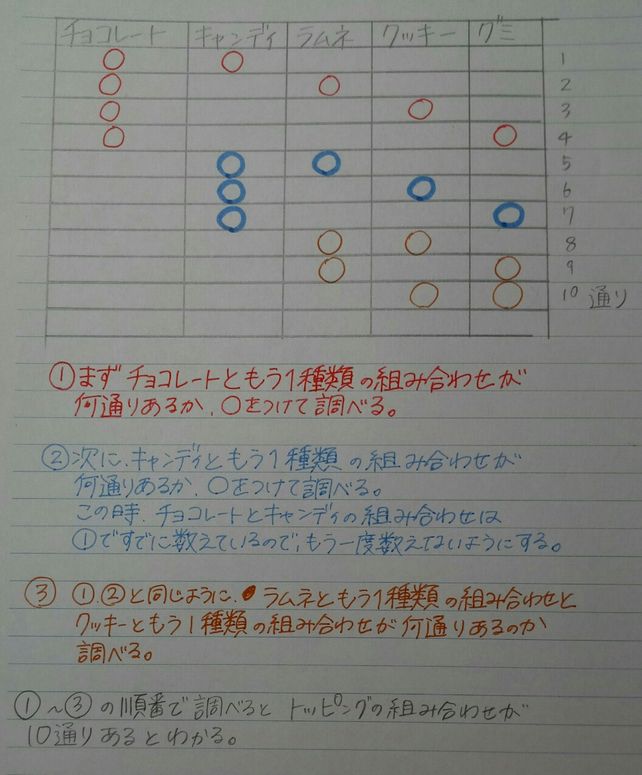 チョコレート キャンディ ラムネ クッキー グミ
○ ○ 1
○ ○ 2
○ ○ 3
○ ○ 4
○ ○ 5
○ ○ 6
○ ○ 7
○ ○ 8
○ ○ 9
○ ○ 10 通り
①まずチョコレートともう1種類の組み合わせが
何通りあるか、○をつけて調べる。
②次に、キャンディともう1種類の組み合わせが
何通りあるか、○をつけて調べる。
この時、チョコレートとキャンディの組み合わせは
①ですでに数えているので、もう一度数えないようにする。
③ ①、②と同じように、ラムネともう1種類の組み合わせと
クッキーともう1種類の組み合わせが何通りあるのか
調べる。
①~③の順番で調べると トッピングの組み合わせが
10通りあるとわかる。